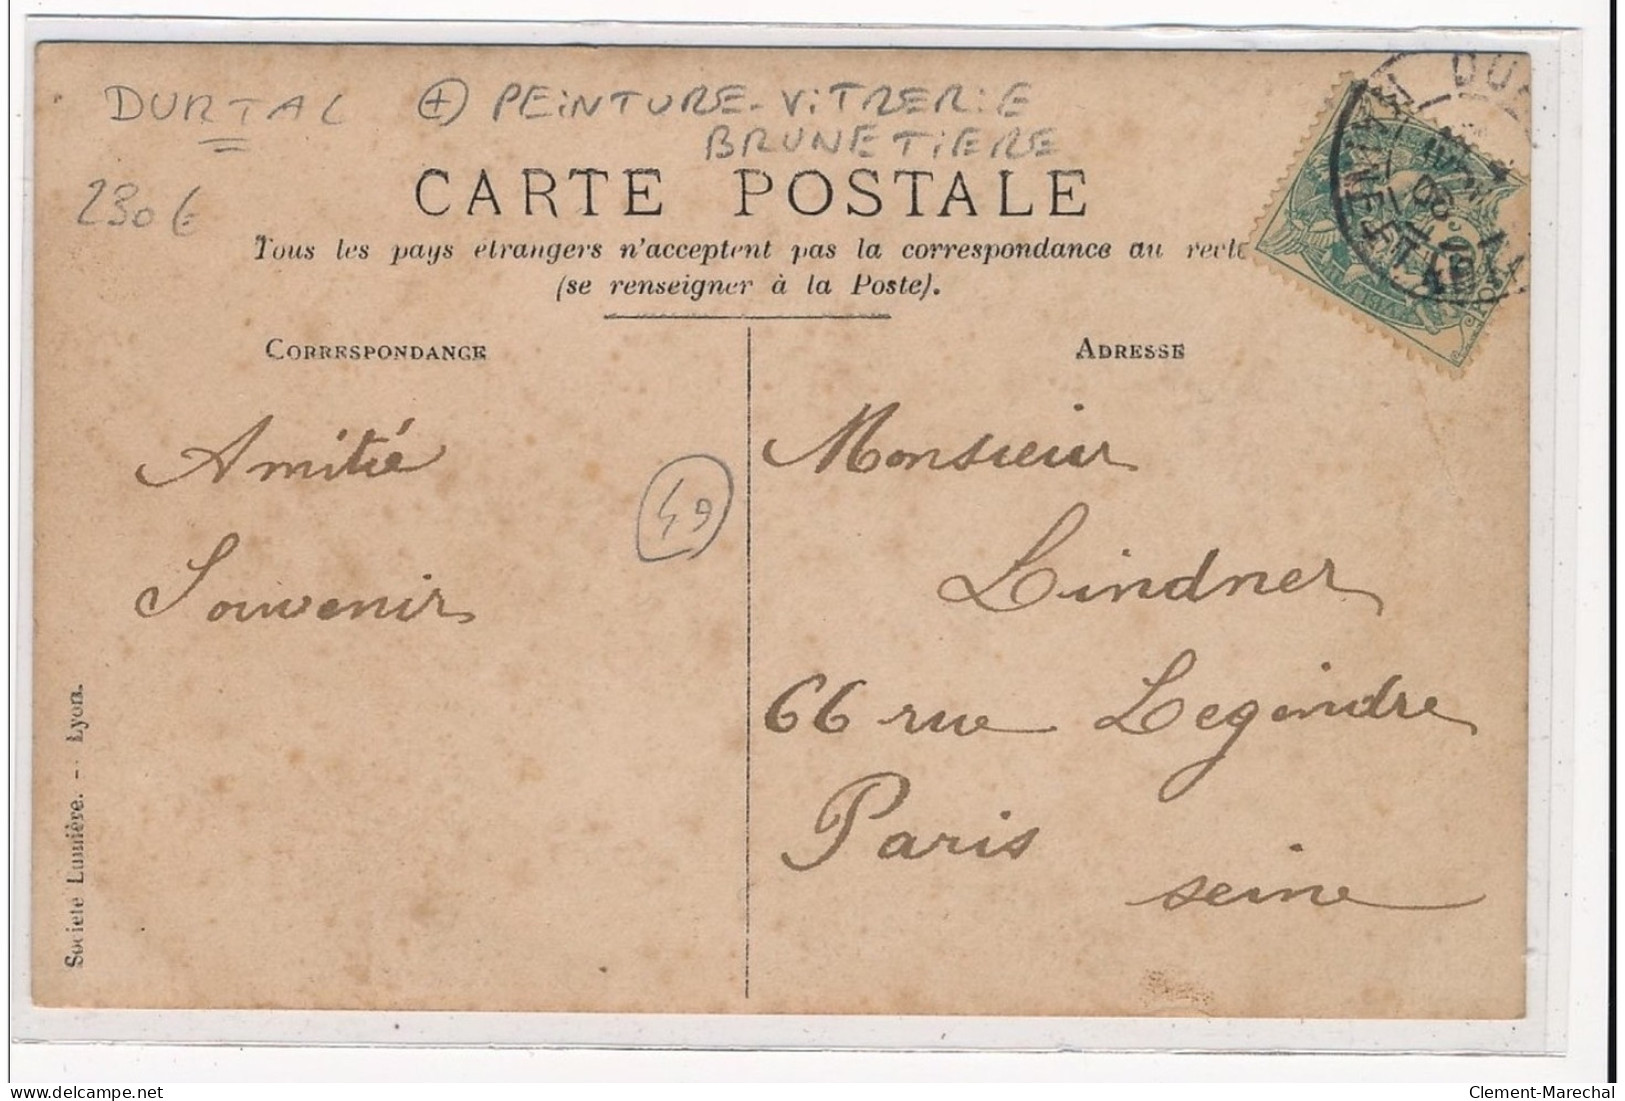 DURTAL + PEINTURE-VITRERIE
BRUNETIERE
230 €
CARTE POSTALE
Tous les pays etrangers n'acceptent pas la correspondance au recto
(se renseigner à la Poste).
CORRESPONDANCE
ADRESSE
Amitié
Souvenir
49
Monsieur
Lindner
66 rue Legendre
Paris
seine
Société Lumière. - Lyon.
delcampe.net
Clement-Marechal